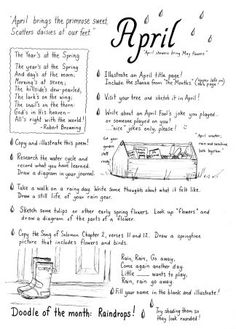 "April brings the primrose sweet,
Scatters daisies at our feet"
April
"April showers bring May flowers"
The Year's at the Spring
The year's at the Spring
And day's at the morn;
Morning's at seven;
The hillside's dew-pearled;
The lark's on the wing;
The snail's on the thorn;
God's in His heaven -
All's right with the world!
- Robert Browning
Illustrate an April title page!
Include the stanza from "The Months"
Visit your tree and sketch it in April!
Write about an April Fool's joke you played...
or someone played on you!
"nice" jokes only, please!
Copy and illustrate this poem!
Research the water cycle and
record what you have learned.
Draw a diagram in your journal.
Take a walk on a rainy day. Write some thoughts about what it felt like.
Draw a still life of your rain gear.
Sketch some tulips or other early spring flowers. Look up "flowers" and
draw a diagram of the parts of a flower.
Copy the Song of Solomon Chapter 2, verses 11 and 12. Draw a springtime
picture that includes flowers and birds.
Rain, Rain, Go away,
Come again another day.
Little ____ wants to play,
Rain, rain go away.
Fill your name in the blank and illustrate!
Doodle of the month: Raindrops!
Try shading them so
they look rounded